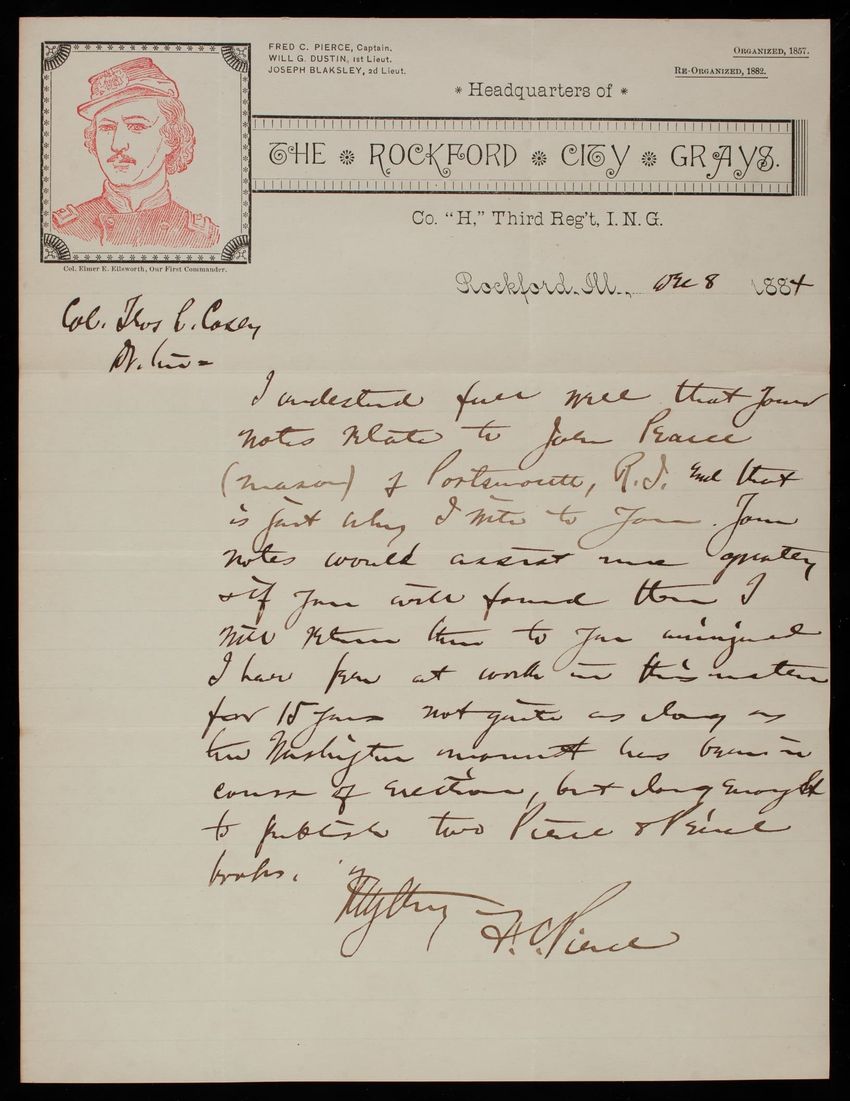 FRED C. PIERCE, Captain.
WILL G. DUSTIN, 1st Lieut.
JOSEPH BLAKSLEY, 2d Lieut.
ORGANIZED, 1857.
RE-ORGANIZED, 1882.
* Headquarters of *
THE ROCKFORD CITY GRAYS.
Co. "H," Third Reg't, I. N. G.
Col. Elmer E. Ellsworth, Our First Commander.
Rockford, Ill., Dec 8 1884
Col. Thos L. Casey
Dr. Sir =
I understand full well that your
notes relate to John Pearce
(mason) of Portsmouth, R.I. and that
is just why I write to you. Your
notes would assist me greatly
& if you will them I
will return them to you uninjured
I have been at work in this matter
for 15 years not quite as long as
the Washington monument has been in
course of erection, but long enough
to publish two Pierce &
books.
F. C. Pierce